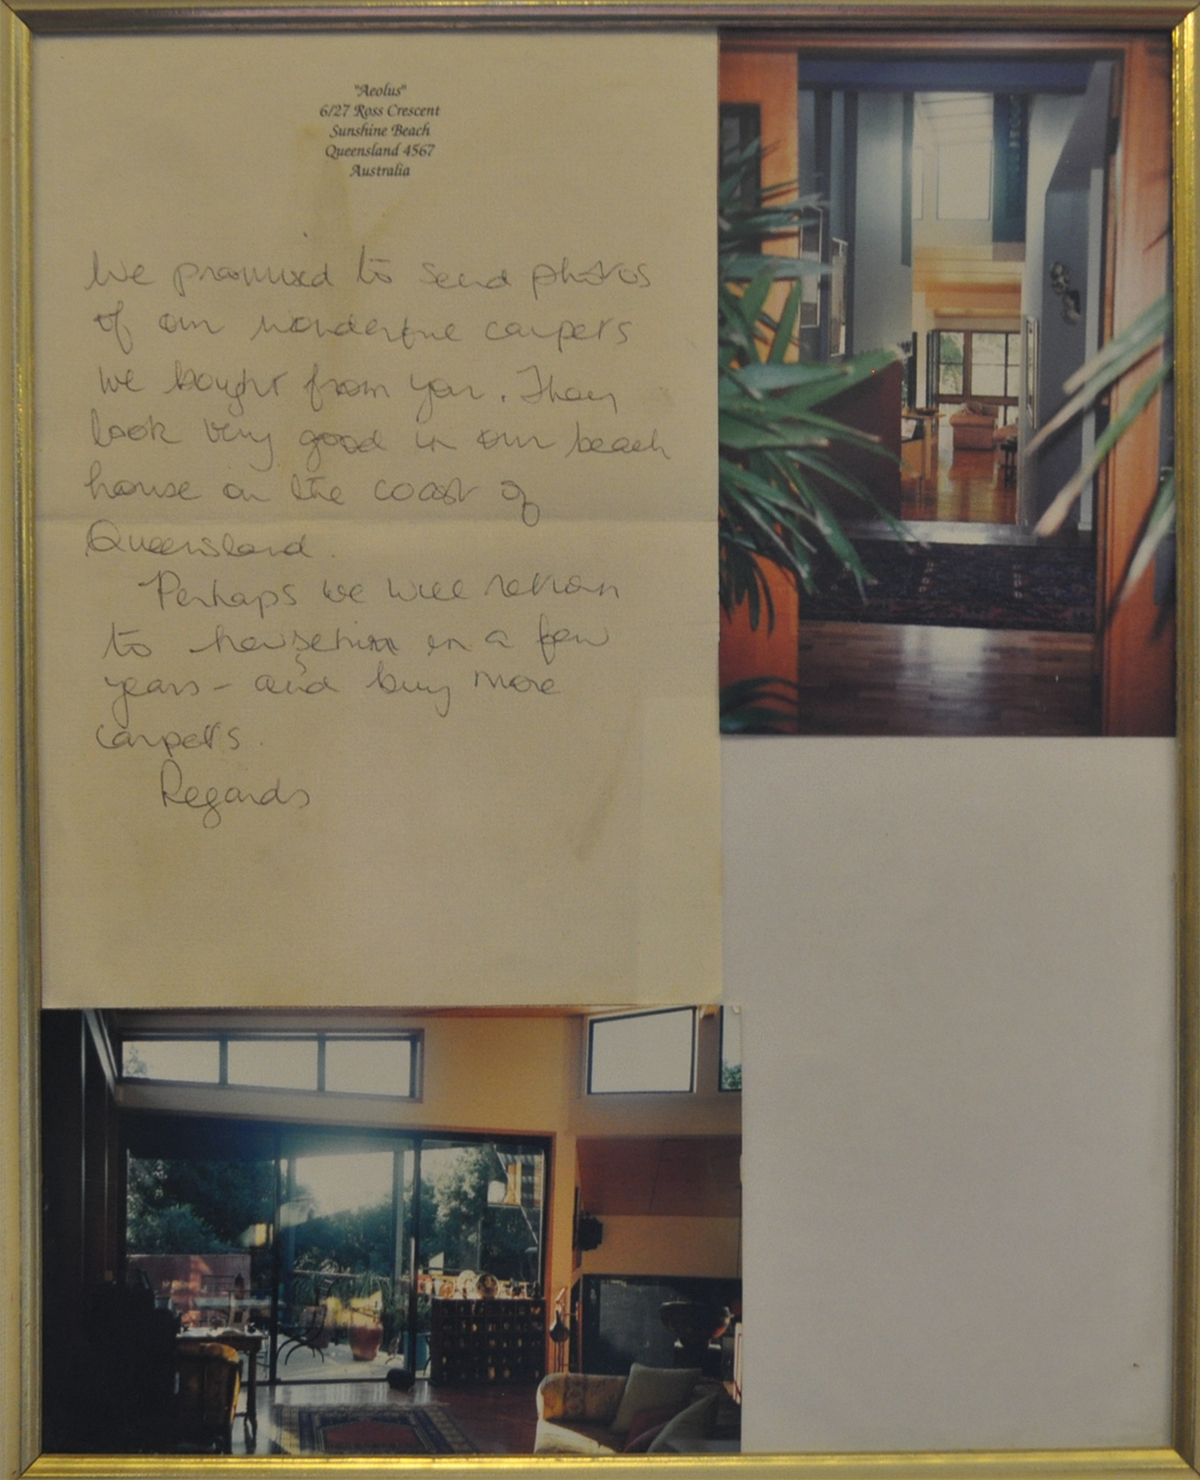 "Aeolus"
6/27 Ross Crescent
Sunshine Beach
Queensland 4567
Australia
We promised to send photos
of our wonderful carpets
we bought from you. They
look very good in our beach
house on the coast of
Queensland.
Perhaps we will return
to in a few
years - and buy more
carpets.
Regards